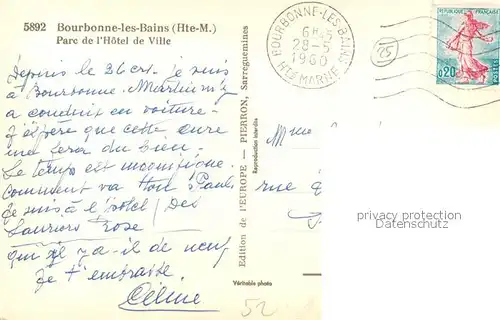 5892 Bourbonne-les-Bains (Hte-M.)
Parc de l'Hôtel de Ville
Depuis le 26 crt je suis
à Bourbonne. Martin m'y
a conduit en voiture
J'espère que cette cure
me fera du bien.
Le temps est magnifique.
Comment va Paul
Je suis à l'hôtel (Des
Lauriers Rose
qui y a-il de neuf
Je t'embrasse.
Céline
Edition de l'EUROPE — PIERRON, Sarreguemines
Reproduction interdite
Véritable photo
BOURBONNE-LES-BAINS
28-5
1960
HTE MARNE
25
REPUBLIQUE FRANÇAISE
0,20
POSTES
Mme
rue
privacy protection
Datenschutz
52